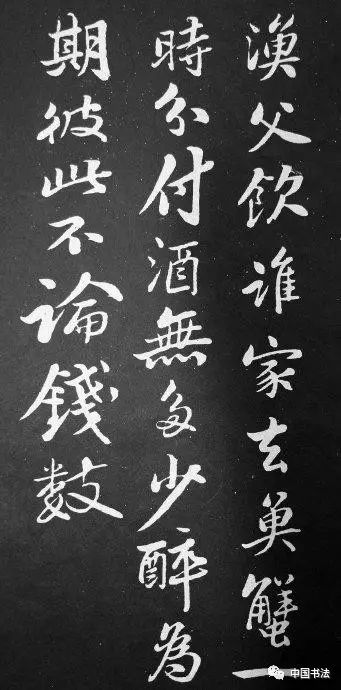 漁父飲誰家去魚蟹一
時分付酒無多少醉為
期彼此不論錢數
中国书法